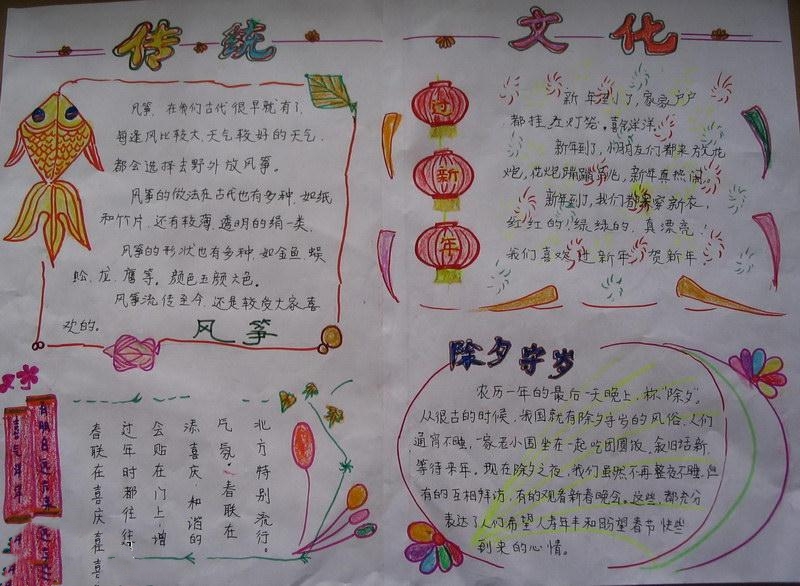 传统
文化
风筝，在我们古代很早就有了，
每逢风比较大，天气较好的天气，
都会选择去野外放风筝。
风筝的做法在古代也有多种，如纸
和竹片，还有较薄，透明的绢一类。
风筝的形状也有多种，如金鱼，蜈
蚣，龙，鹰等。颜色五颜六色。
风筝流传至今，还是较受大家喜
欢的。
风筝
过
新
年
新年到了，家家户户
都挂起灯笼。喜气洋洋。
新年到了，小朋友们都来放花
炮，花炮蹦蹦飞，新年真热闹。
新年到了，我们都穿新衣，
红红的！绿绿的，真漂亮！
我们喜欢过新年，贺新年
春联在喜庆在喜
过年时都往往
会贴在门上，增
添喜庆、和谐的
气氛，春联在
北方特别流行。
除夕守岁
农历一年的最后一天晚上，称"除夕"。
从很古的时候，我国就有除夕守岁的风俗，人们
通宵不睡，一家老小围坐在一起吃团圆饭，叙旧话新，
等待来年。现在除夕之夜，我们虽然不再整夜不睡，但
有的互相拜访，有的观看新春晚会。这些，都充分
表达了人们希望人寿年丰和盼望春节快些
到来的心情。